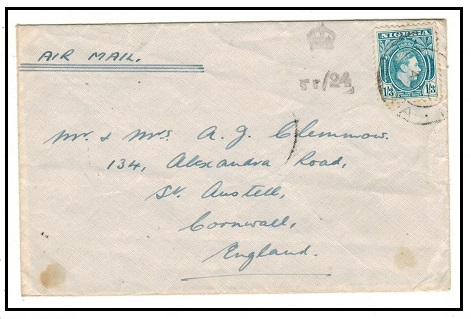 NIGERIA
AIR MAIL.
1/3 1/3
Mr. & Mrs. A. J. Clemmow.
134, Alexandra Road,
St. Austell,
Cornwall,
England.